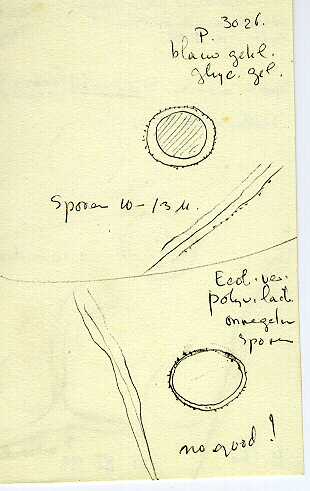 P. 3026.
blauw gekl.
glyc. gel.
Sporen 10-13 µ.
Ecol. ver.
polyvi. lact.
onregelm
sporen
no good!